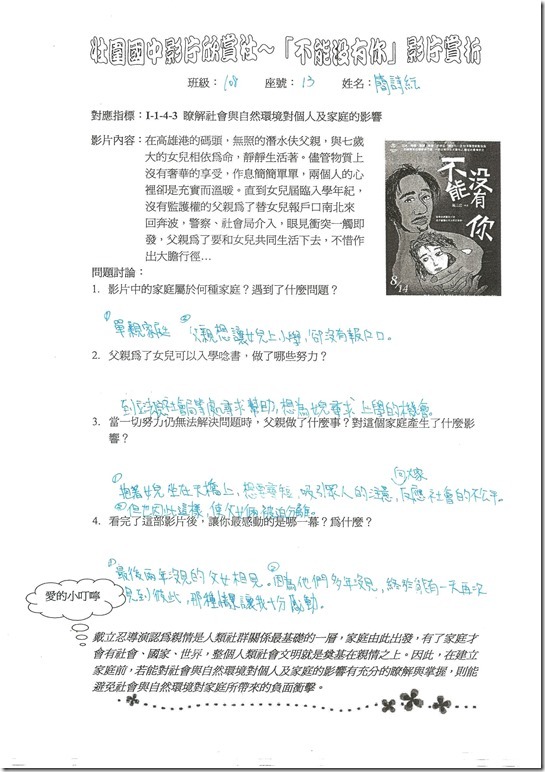 壯圍國中影片欣賞社～「不能沒有你」影片賞析
班級：108 座號：13 姓名：簡詩紜
對應指標：I-1-4-3 瞭解社會與自然環境對個人及家庭的影響
影片內容：在高雄港的碼頭，無照的潛水伕父親，與七歲
大的女兒相依為命，靜靜生活著。儘管物質上
沒有奢華的享受，作息簡簡單單，兩個人的心
裡卻是充實而溫暖。直到女兒屆臨入學年紀，
沒有監護權的父親爲了替女兒報戶口南北來
回奔波，警察、社會局介入，眼見衝突一觸即
發，父親爲了要和女兒共同生活下去，不惜作
出大膽行徑…
不能沒有你
8/14
問題討論：
1. 影片中的家庭屬於何種家庭？遇到了什麼問題？
①單親家庭 ②父親想讓女兒上小學，卻沒有報戶口。
2. 父親爲了女兒可以入學唸書，做了哪些努力？
社會局等處尋求幫助，想為女兒尋求上學的機會
3. 當一切努力仍無法解決問題時，父親做了什麼事？對這個家庭產生了什麼影
響？
①抱著女兒坐在天橋上，想要尋短，吸引眾人的注意，向大家反應社會的不公平。
②但也因此這樣，使父女倆被迫分離。
4. 看完了這部影片後，讓你最感動的是哪一幕？爲什麼？
①最後兩年沒見的父女相見。②因為他們多年沒見，終於能有一天再次
見到彼此，那種情景讓我十分感動。
愛的小叮嚀
戴立忍導演認爲親情是人類社群關係最基礎的一層，家庭由此出發，有了家庭才
會有社會、國家、世界，整個人類社會文明就是奠基在親情之上。因此，在建立
家庭前，若能對社會與自然環境對個人及家庭的影響有充分的瞭解與掌握，則能
避免社會與自然環境對家庭所帶來的負面衝擊。